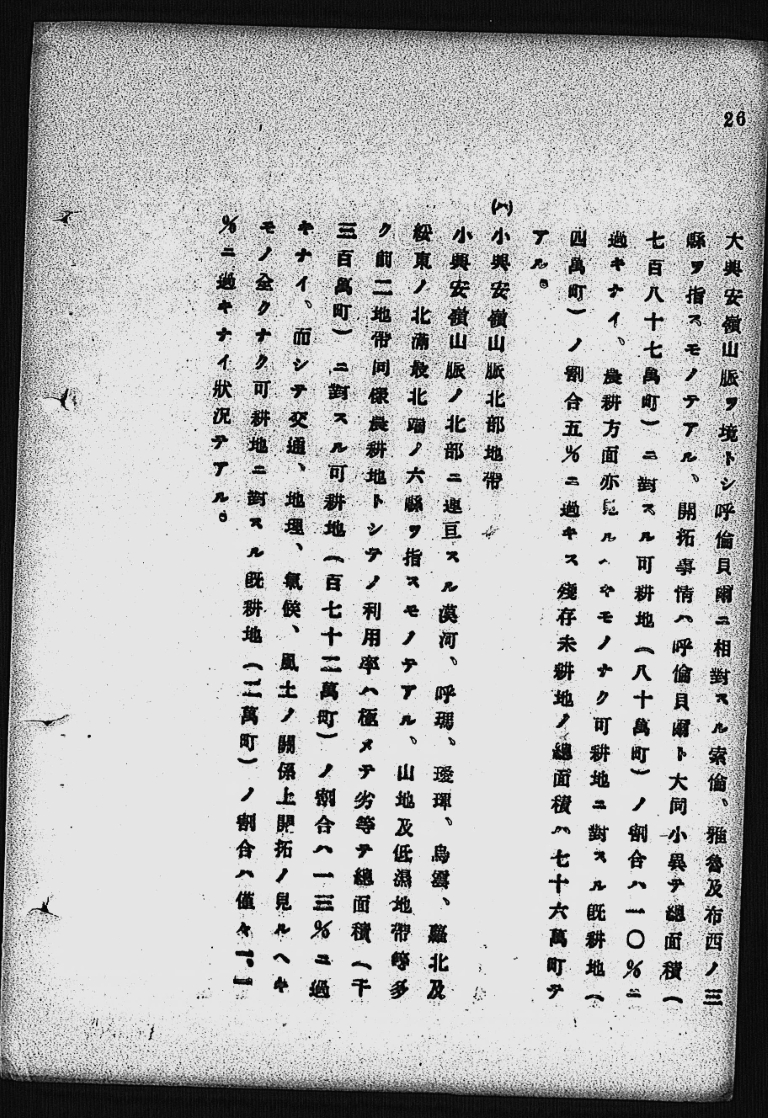 26
大興安嶺山脈ヲ境トシ呼倫貝爾ニ相對スル索倫、雅魯及布西ノ三
縣ヲ指スモノテアル、開拓事情ハ呼倫貝爾ト大同小異テ總面積(
七百八十七萬町)ニ對スル可耕地(八十萬町)ノ割合ハ一〇%ニ
過キナイ、農耕方面亦見ルヘキモノナク可耕地ニ對スル既耕地(
四萬町)ノ割合五%ニ過キス殘存未耕地ノ總面積ハ七十六萬町テ
アル。
(ハ)小興安嶺山脈北部地帶
小興安嶺山脈ノ北部ニ連亘スル漠河、呼瑪、璦琿、烏雲、蘿北及
綏東ノ北滿最北端ノ六縣ヲ指スモノテアル、山地及低濕地帶等多
ク前二地帶同樣農耕地トシテノ利用率ハ極メテ劣等テ總面積(千
三百萬町)ニ對スル可耕地(百七十二萬町)ノ割合ハ一三%ニ過
キナイ、而シテ交通、地理、氣候、風土ノ關係上開拓ノ見ルヘキ
モノ全クナク可耕地ニ對スル既耕地(二萬町)ノ割合ハ僅々一・一
%ニ過キナイ狀況テアル。